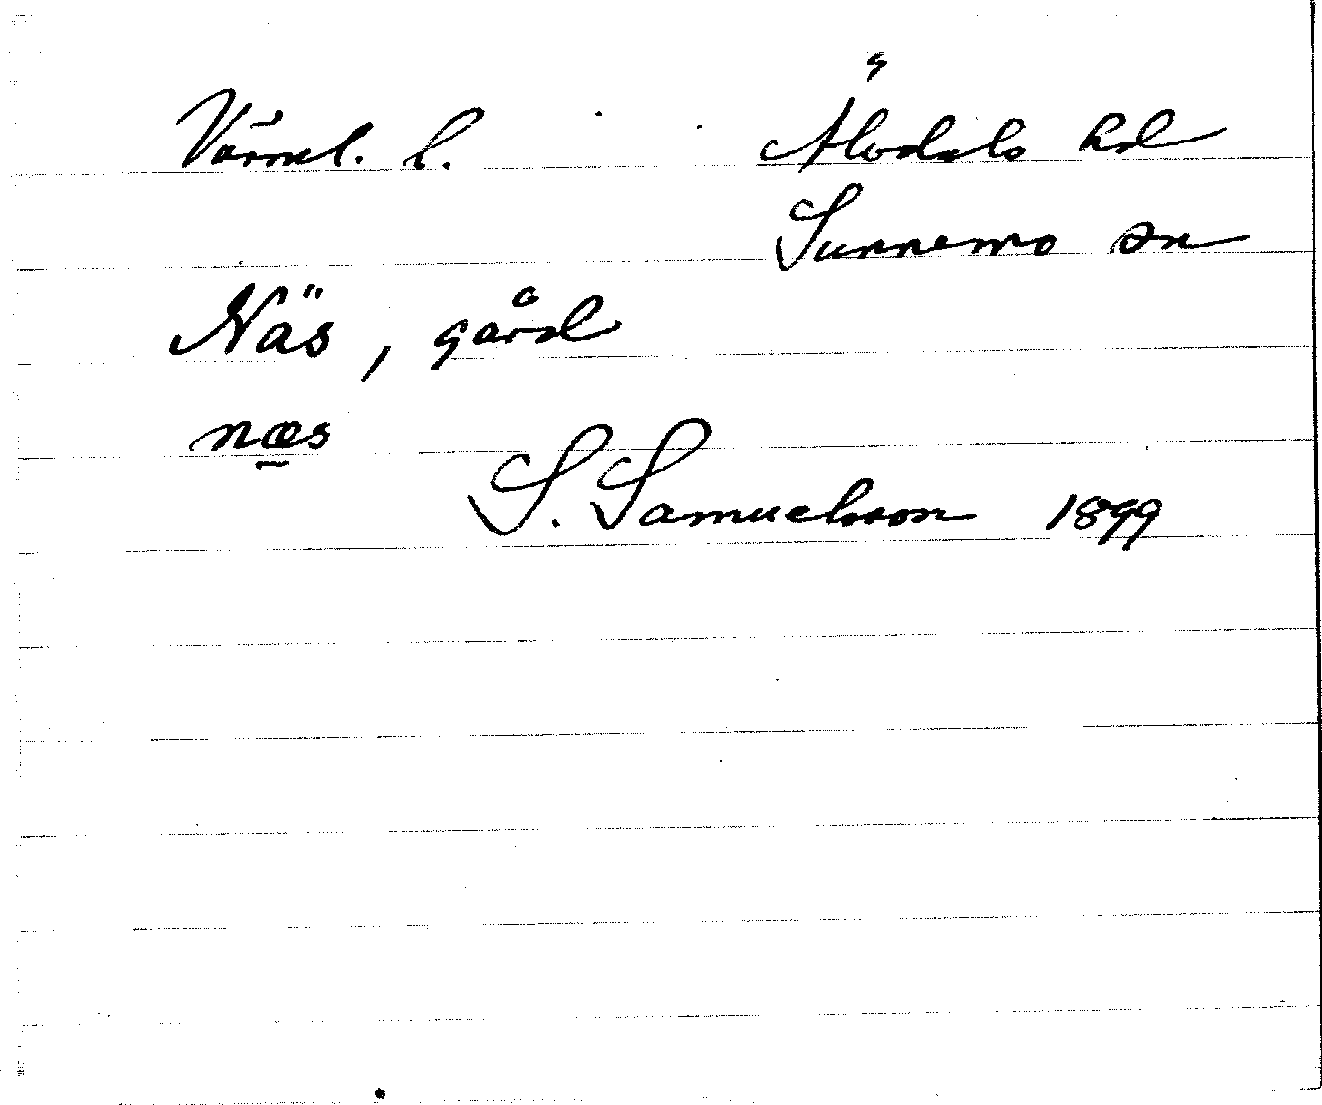 Värml. l. Älvdals hd
Sunnemo sn
Näs, gård
næs
S. Samuelsson 1899